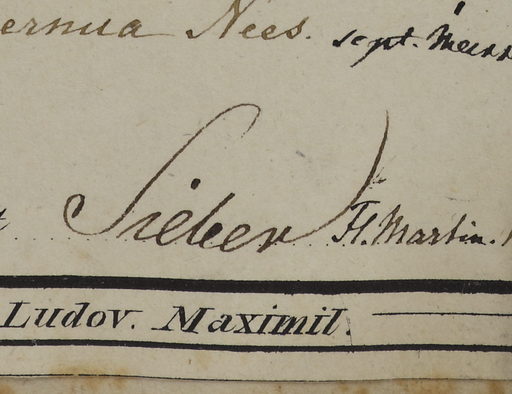 ernua Nees. sept. Murr
Sieber Fl. Martin.
Ludov. Maximil.